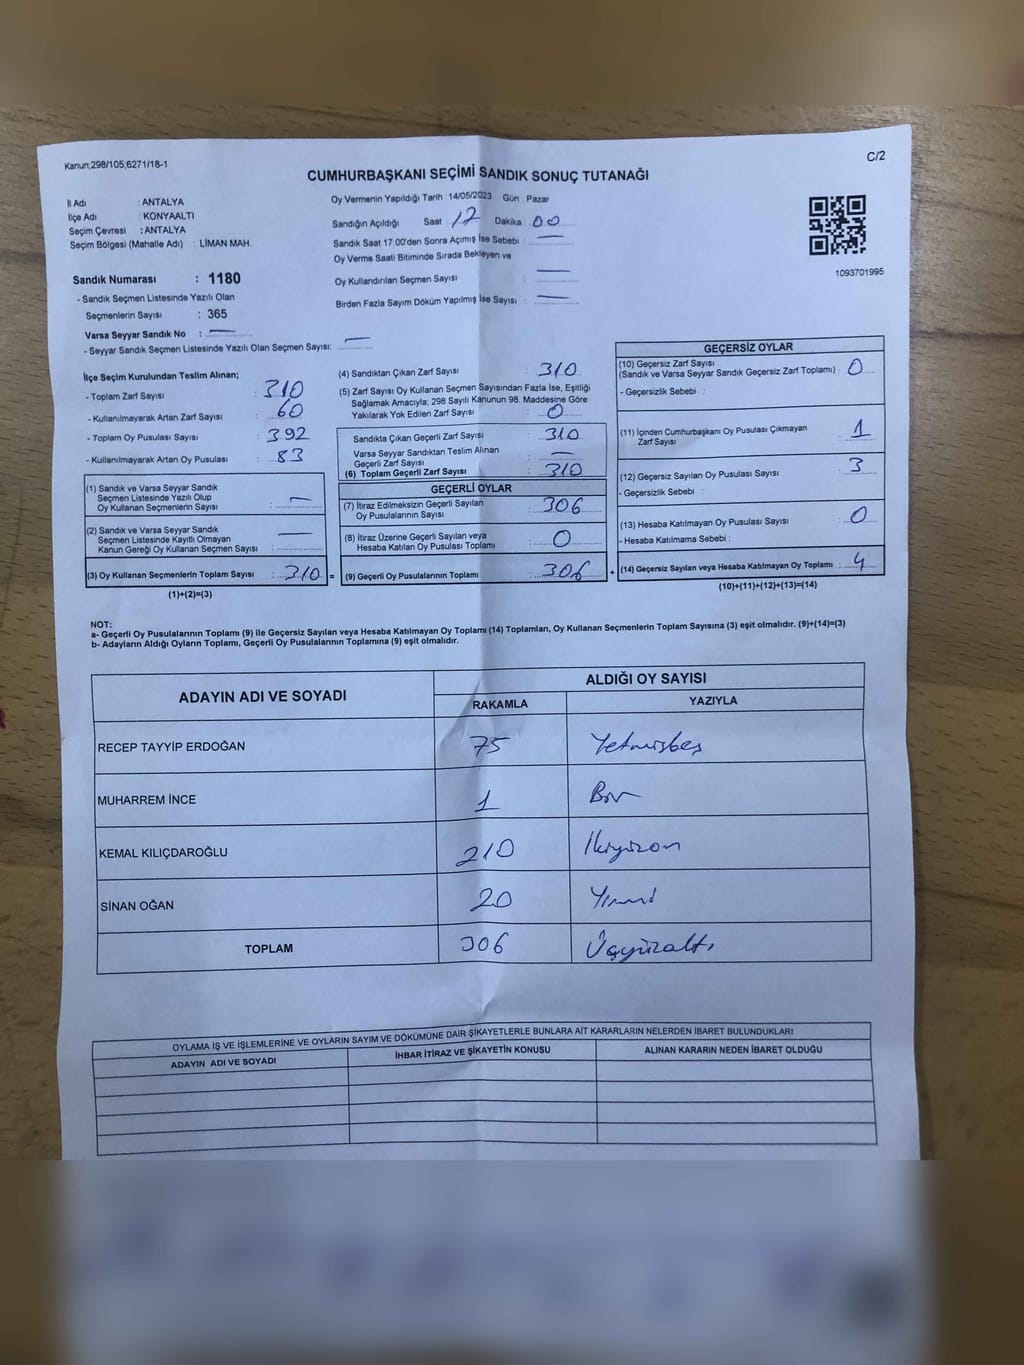 Kanun;298/105,6271/18-1
C/2
CUMHURBAŞKANI SEÇİMİ SANDIK SONUÇ TUTANAĞI
İl Adı : ANTALYA
İlçe Adı : KONYAALTI
Seçim Çevresi : ANTALYA
Seçim Bölgesi (Mahalle Adı) : LİMAN MAH.
Oy Vermenin Yapıldığı Tarih : 14/05/2023 Gün : Pazar
Sandığın Açıldığı Saat 17 Dakika : 00
Sandık Saat 17:00'den Sonra Açımış İse Sebebi : —
Oy Verme Saati Bitiminde Sırada Bekleyen ve
Oy Kullandırılan Seçmen Sayısı : —
Birden Fazla Sayım Döküm Yapılmış İse Sayısı : —
1093701995
Sandık Numarası : 1180
- Sandık Seçmen Listesinde Yazılı Olan
Seçmenlerin Sayısı : 365
Varsa Seyyar Sandık No : —
- Seyyar Sandık Seçmen Listesinde Yazılı Olan Seçmen Sayısı: —
İlçe Seçim Kurulundan Teslim Alınan;
- Toplam Zarf Sayısı : 310
- Kullanılmayarak Artan Zarf Sayısı : 60
- Toplam Oy Pusulası Sayısı : 392
- Kullanılmayarak Artan Oy Pusulası : 83
(1) Sandık ve Varsa Seyyar Sandık
Seçmen Listesinde Yazılı Olup
Oy Kullanan Seçmenlerin Sayısı : —
(2) Sandık ve Varsa Seyyar Sandık
Seçmen Listesinde Kayıtlı Olmayan
Kanun Gereği Oy Kullanan Seçmen Sayısı : —
(3) Oy Kullanan Seçmenlerin Toplam Sayısı : 310 =
(1)+(2)=(3)
(4) Sandıktan Çıkan Zarf Sayısı : 310
(5) Zarf Sayısı Oy Kullanan Seçmen Sayısından Fazla İse, Eşitliği
Sağlamak Amacıyla; 298 Sayılı Kanunun 98. Maddesine Göre
Yakılarak Yok Edilen Zarf Sayısı : 0
Sandıkta Çıkan Geçerli Zarf Sayısı : 310
Varsa Seyyar Sandıktan Teslim Alınan
Geçerli Zarf Sayısı : —
(6) Toplam Geçerli Zarf Sayısı : 310
GEÇERLİ OYLAR
(7) İtiraz Edilmeksizin Geçerli Sayılan
Oy Pusulalarının Sayısı : 306
(8) İtiraz Üzerine Geçerli Sayılan veya
Hesaba Katılan Oy Pusulası Toplamı : 0
(9) Geçerli Oy Pusulalarının Toplamı : 306 +
GEÇERSİZ OYLAR
(10) Geçersiz Zarf Sayısı
(Sandık ve Varsa Seyyar Sandık Geçersiz Zarf Toplamı) : 0
- Geçersizlik Sebebi :
(11) İçinden Cumhurbaşkanı Oy Pusulası Çıkmayan
Zarf Sayısı : 1
(12) Geçersiz Sayılan Oy Pusulası Sayısı : 3
- Geçersizlik Sebebi :
(13) Hesaba Katılmayan Oy Pusulası Sayısı : 0
- Hesaba Katılmama Sebebi :
(14) Geçersiz Sayılan veya Hesaba Katılmayan Oy Toplamı : 4
(10)+(11)+(12)+(13)=(14)
NOT:
a- Geçerli Oy Pusulalarının Toplamı (9) ile Geçersiz Sayılan veya Hesaba Katılmayan Oy Toplamı (14) Toplamları, Oy Kullanan Seçmenlerin Toplam Sayısına (3) eşit olmalıdır. (9)+(14)=(3)
b- Adayların Aldığı Oyların Toplamı, Geçerli Oy Pusulalarının Toplamına (9) eşit olmalıdır.
ADAYIN ADI VE SOYADI
ALDIĞI OY SAYISI
RAKAMLA YAZIYLA
RECEP TAYYİP ERDOĞAN 75 Yetmişbeş
MUHARREM İNCE 1 Bir
KEMAL KILIÇDAROĞLU 210 İkiyüzon
SİNAN OĞAN 20 Yirmi
TOPLAM 306 Üçyüzaltı
OYLAMA İŞ VE İŞLEMLERİNE VE OYLARIN SAYIM VE DÖKÜMÜNE DAİR ŞİKAYETLERLE BUNLARA AİT KARARLARIN NELERDEN İBARET BULUNDUKLARI
ADAYIN ADI VE SOYADI İHBAR İTİRAZ VE ŞİKAYETİN KONUSU ALINAN KARARIN NEDEN İBARET OLDUĞU